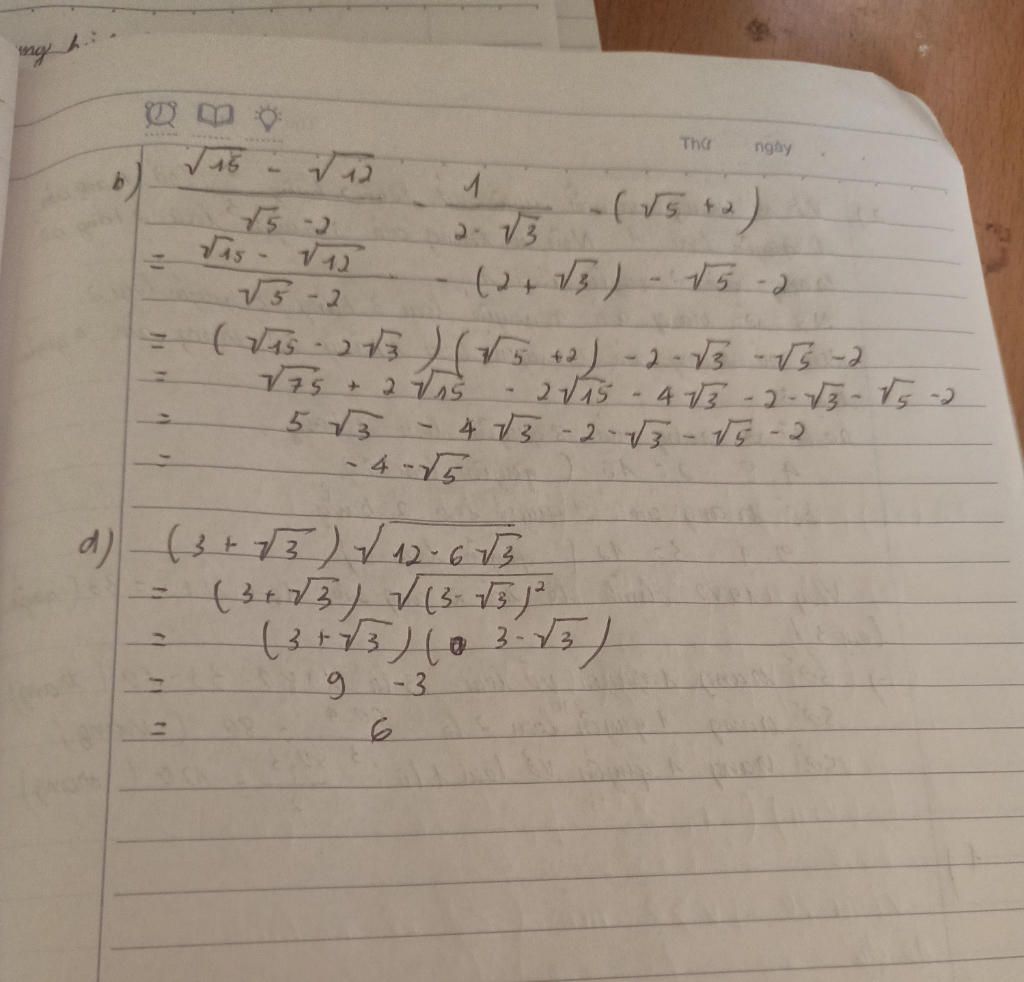 Thứ ngày
b) (√15 - √12)/(√5 - 2) - 1/(2 - √3) - (√5 + 2)
= (√15 - √12)/(√5 - 2) - (2 + √3) - √5 - 2
= (√15 - 2√3)(√5 + 2) - 2 - √3 - √5 - 2
= √75 + 2√15 - 2√15 - 4√3 - 2 - √3 - √5 - 2
= 5√3 - 4√3 - 2 - √3 - √5 - 2
= - 4 - √5
d) (3 + √3)√(12 - 6√3)
= (3 + √3) √((3 - √3)²)
= (3 + √3)(3 - √3)
= 9 - 3
= 6